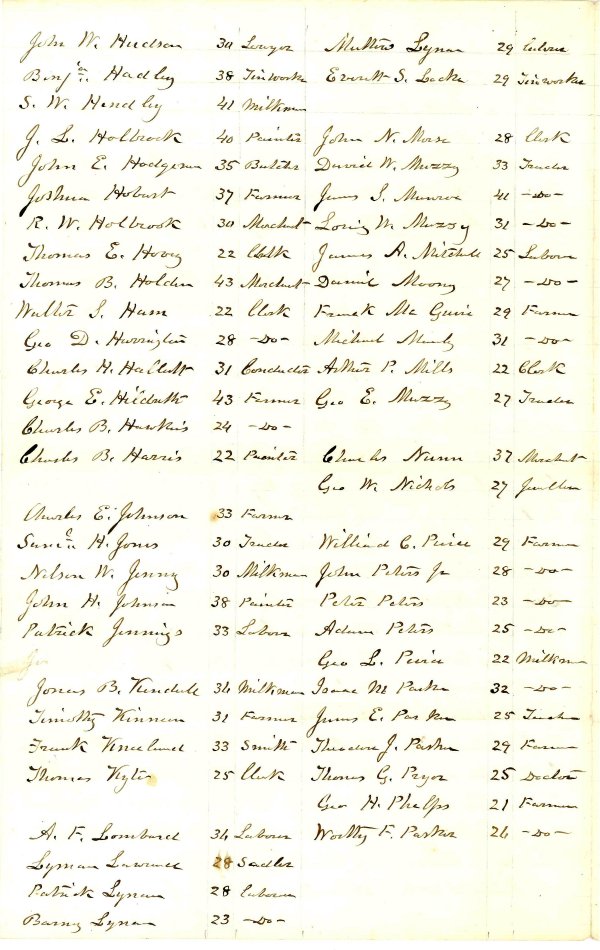 John W. Hudson 30 Lawyer
Benjn. Hadley 38 Tinworker
S. W. Hendley 41 Milkman
J. L. Holbrook 40 Painter
John E. Hodgeman 35 Butcher
Joshua Hobart 37 Farmer
R. W. Holbrook 30 Merchant
Thomas E. Hovey 22 Clerk
Thomas B. Holden 43 Merchant
Walter S. Ham 22 Clerk
Geo D. Harrington 28 -Do-
Charles H. Hallett 31 Conductor
George E. Hildreth 43 Farmer
Charles B. Hawkins 24 -Do-
Charles B. Harris 22 Painter
Charles E. Johnson 33 Farmer
H. Jones 30 Trader
Nelson W. Jenny 30 Milkman
John H. Johnson 38 Painter
Patrick Jennings 33 Labour
Jonas B. Kendall 34 Milkman
Timothy Kinnean 31 Farmer
Frank Kneeland 33 Smith
Thomas Kyte 25 Clerk
A. F. Lombard 34 Labour
Lyman Lawrence 28 Sadler
Patrick Lynan 28 Labour
Barny Lynan 23 -Do-
Mathew Lynan 29 Labour
Everett S. Locke 29 Tinworker
John N. Morse 28 Clerk
David W. Muzzy 33 Trader
James S. Munroe 41 -Do-
Loring W. Muzzy 31 -Do-
James A. Mitchell 25 Labour
Daniel Moony 27 -Do-
Frank McGuire 29 Farmer
Michael 31 -Do-
Arthur P. Mills 22 Clerk
Geo E. Muzzy 27 Trader
Charles Nunn 37 Merchant
Geo W. Nichols 27 Jeweller
Willind C. Peirce 29 Farmer
John Peters Jr 28 -Do-
Peter Peters 23 -Do-
Adam Peters 25 -Do-
Geo L. Peirce 22 Milkman
Isaac M Parker 32 -Do-
James E. Parker 25 Teacher
Theodore J. Parker 29 Farmer
Thomas G. Pryor 25 Doctor
Geo H. Phelps 21 Farmer
Worthy F. Parker 26 -Do-